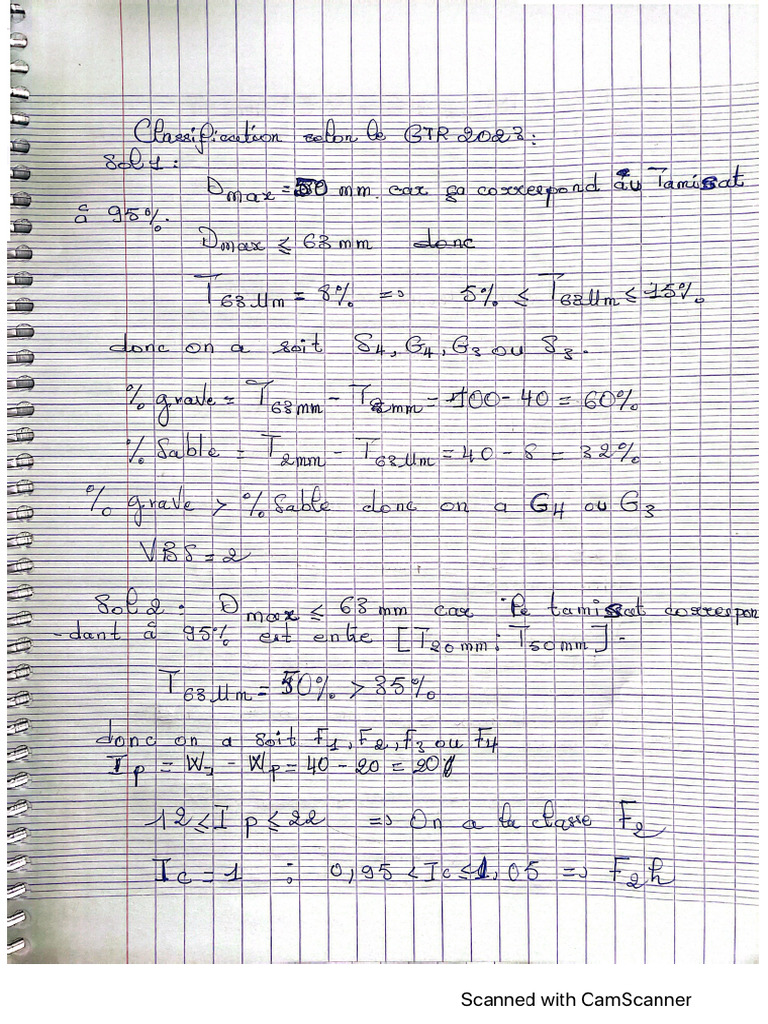 Classification selon le GTR 2023:
Sol 1:
Dmax = 50 mm. car ça correspond au Tamisat
à 95%.
Dmax ≤ 63 mm donc
T63µm = 8% => 5% ≤ T63µm ≤ 15%.
donc on a soit S4, G4, G3 ou S3.
% grave = T63mm - T2mm = 100 - 40 = 60%
% Sable = T2mm - T63µm = 40 - 8 = 32%
% grave > % Sable donc on a G4 ou G3
VBS = 2
Sol 2: Dmax ≤ 63 mm car le tamisat correspon
-dant à 95% est entre [T20mm; T50mm]-
T63µm = 50% > 35%
donc on a soit F1, F2, F3 ou F4
Ip = WL - Wp = 40 - 20 = 20
12 ≤ Ip ≤ 22 => On a la classe F2
Ic = 1 : 0,95 < Ic ≤ 1,05 => F2h
Scanned with CamScanner